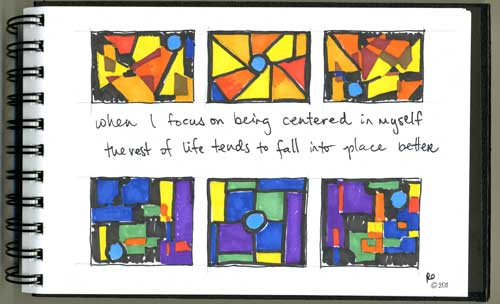 when I focus on being centered in myself
the rest of life tends to fall into place better
RO
© 2011